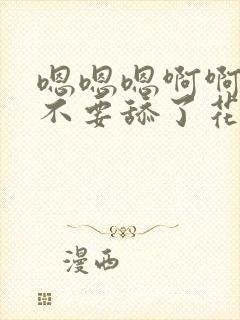 嗯嗯嗯啊啊
不要舔了花
漫西